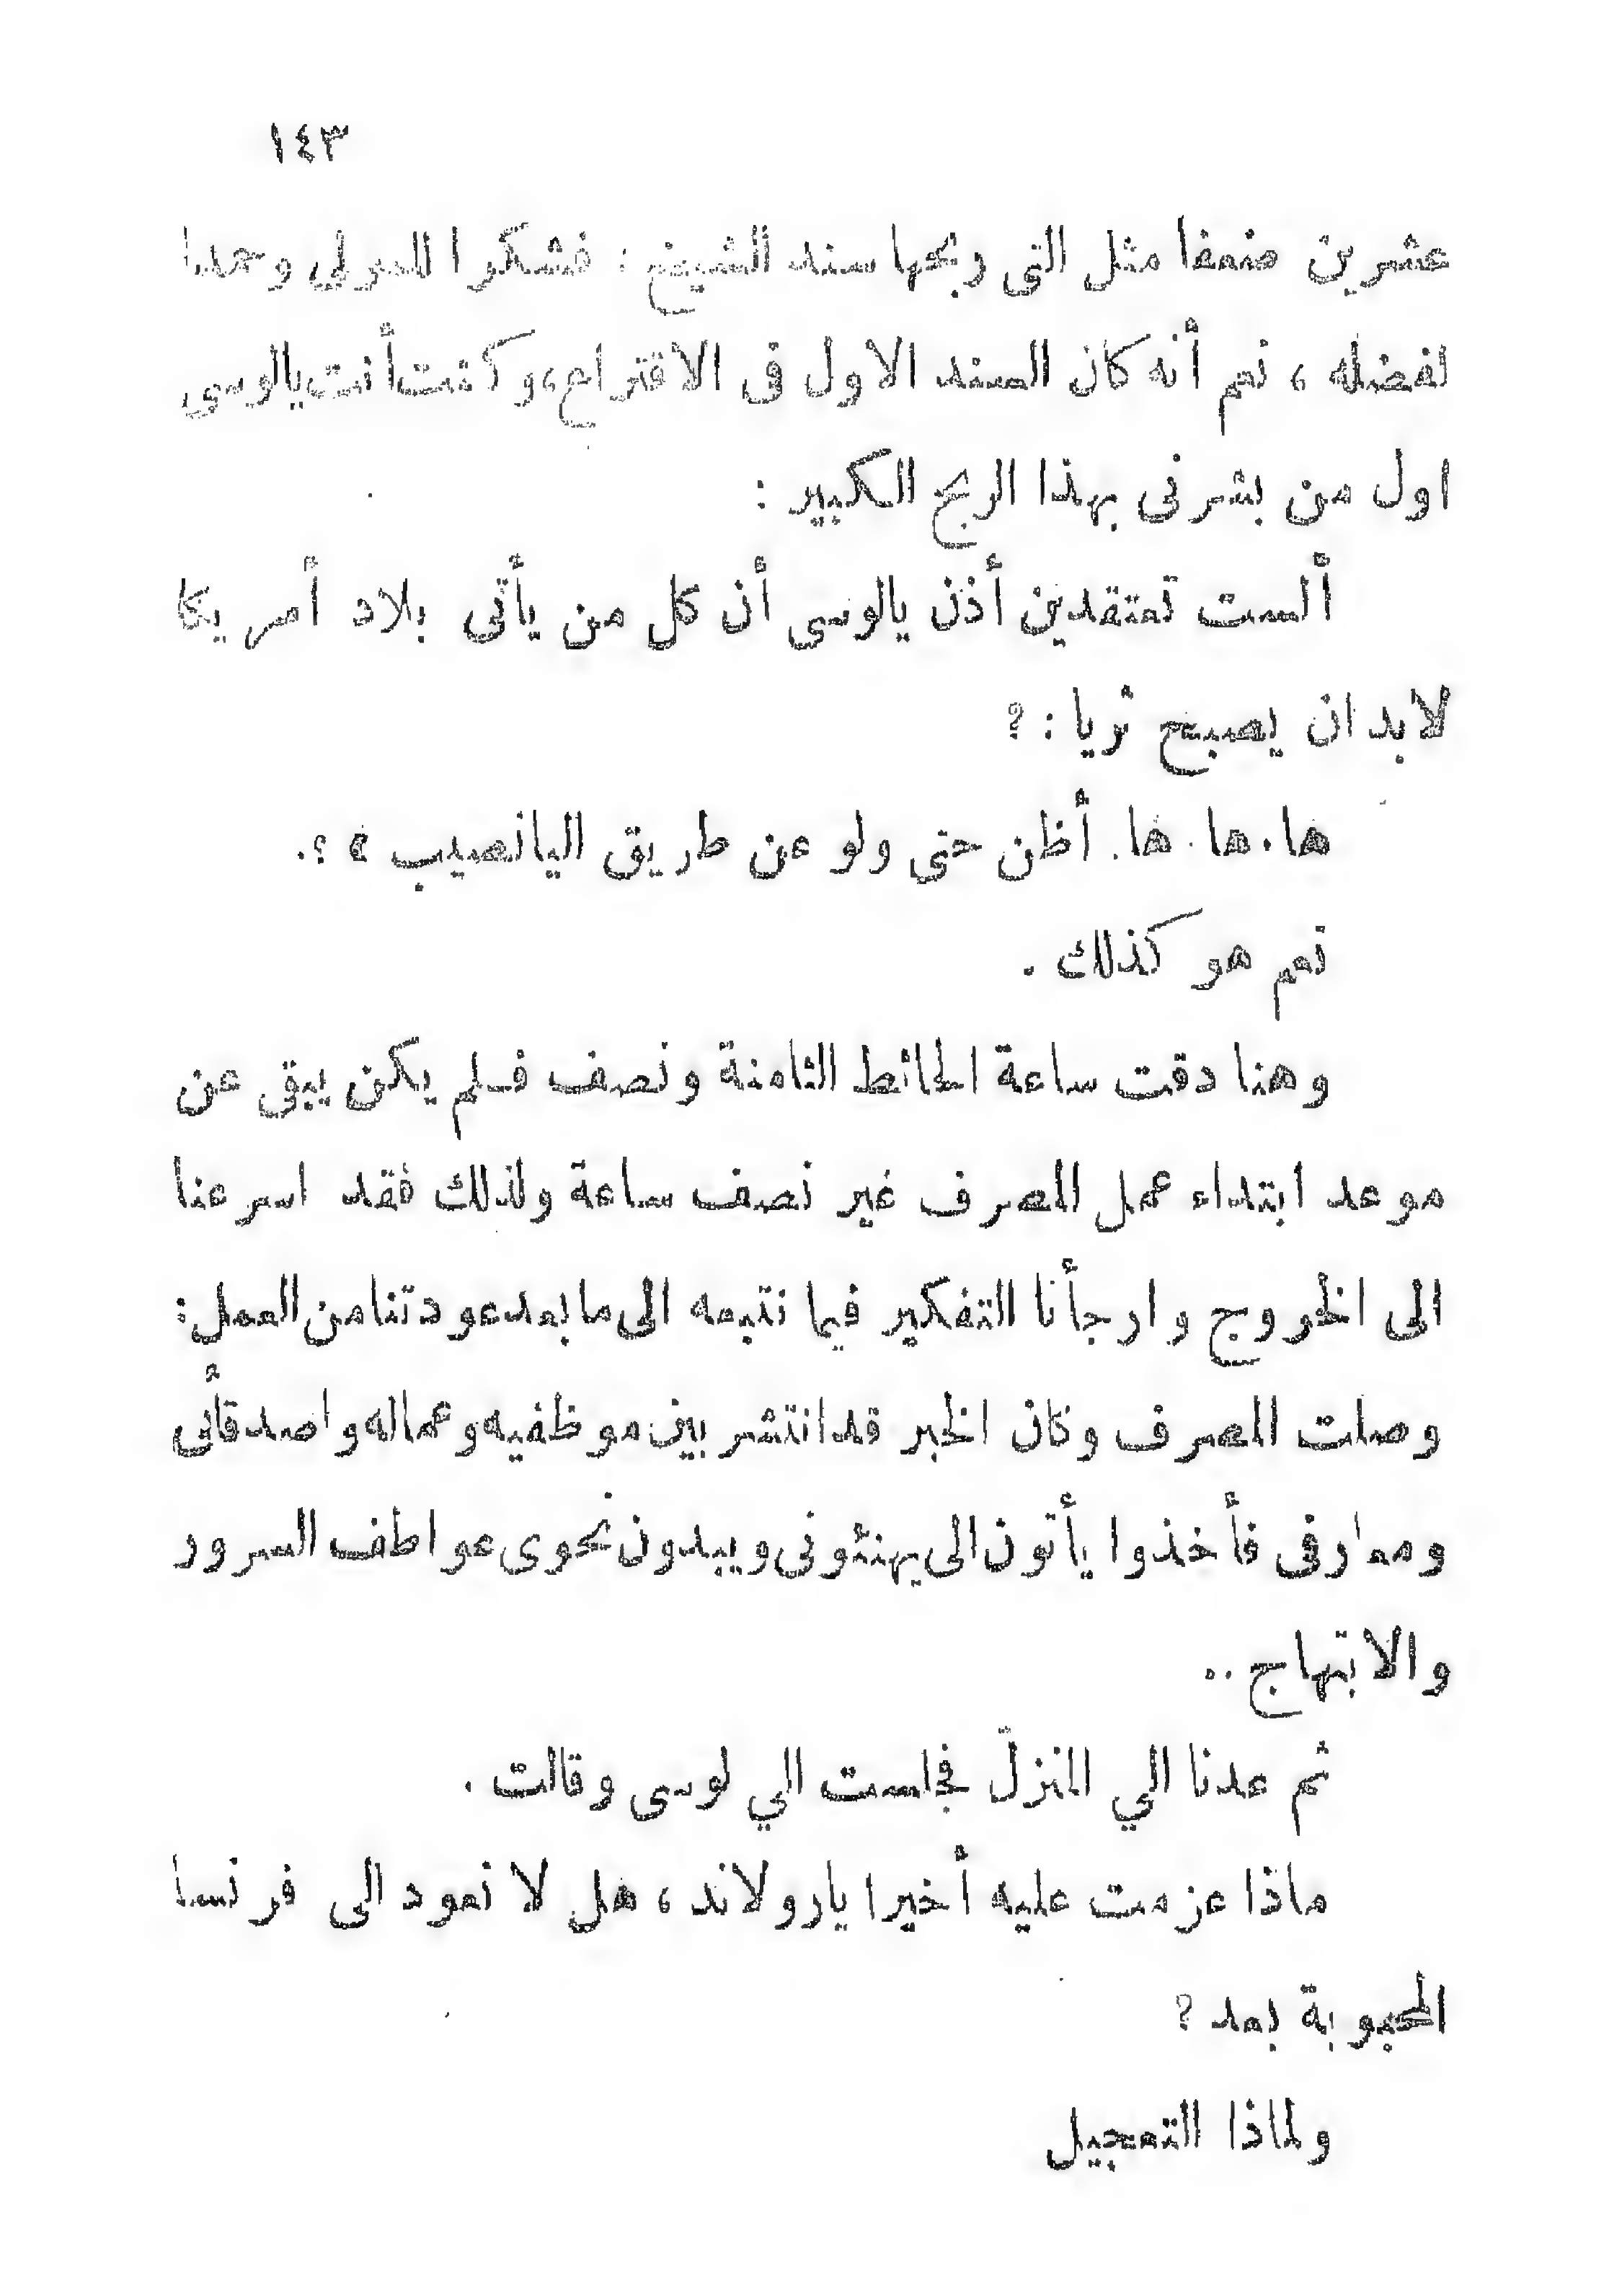 ١٤٣
عشرين ضعفا مثل التى ربحها سند الشيخ : فشكرا للمولى وحمدا
لفضله ، نعم أنه كان السند الاول فى الاقتراع، وكنت أنت يالوسى
اول من بشرنى بهذا الربح الكبير :
ألست تعتقدين أذن يالوسى أن كل من يأتى بلاد أمريكا
لابد ان يصبح ثريا : ؟
ها . ها . ها . أظن حتى ولو عن طريق اليانصيب » ؟.
نعم هو كذلك .
وهنا دقت ساعة الحائط الثامنة ونصف فلم يكن يبقى عن
موعد ابتداء عمل المصرف غير نصف ساعة ولذلك فقد اسرعنا
الى الخروج وارجأنا التفكير فيما نتبعه الى ما بعد عودتنا من العمل :
وصلت المصرف وكان الخبر قد انتشر بين موظفيه وعماله واصدقائى
ومعارفى فأخذوا يأتون الى يهنئونى ويبدون نحوى عواطف السرور
والابتهاج ..
ثم عدنا الي المنزل فجلست الي لوسى وقالت .
ماذا عزمت عليه أخيرا يارولاند ، هل لا نعود الى فرنسا
المحبوبة بعد ؟
ولماذا التعجيل